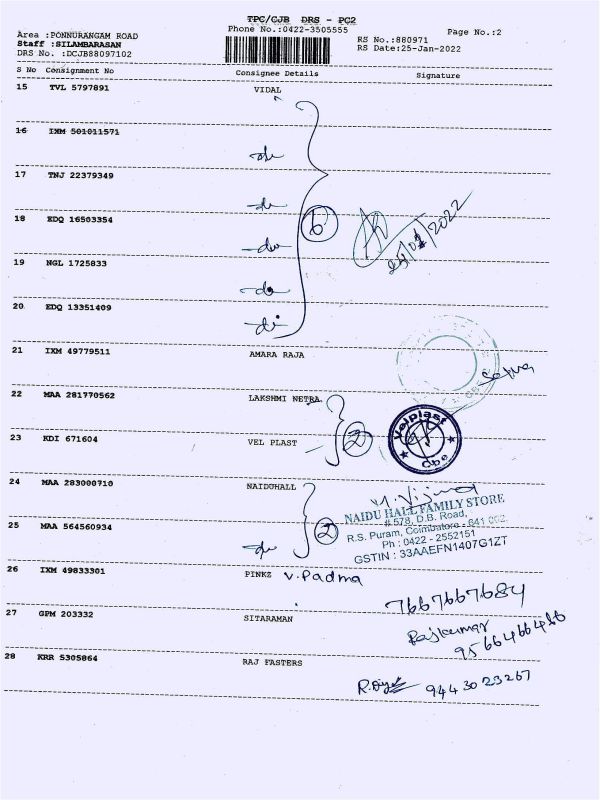 TPC/CJB DRS - PC2
Phone No.:0422-3505555
Page No.:2
Area :PONNURANGAM ROAD
Staff :SILAMBARASAN
DRS No. :DCJB88097102
RS No.:880971
RS Date:25-Jan-2022
S No Consignment No Consignee Details Signature
15 TVL 5797891 VIDAL
16 IXM 501011571
do
17 TNJ 22379349
do
6
25/01/2022
18 EDQ 16503354
do
19 NGL 1725833
do
20 EDQ 13351409
do
21 IXM 49779511 AMARA RAJA
22 MAA 281770562 LAKSHMI NETRA
2
Velplast
Cbe
23 KDI 671604 VEL PLAST
24 MAA 283000710 NAIDUHALL
NAIDU HALL FAMILY STORE
# 578, D.B. Road,
R.S. Puram, Coimbatore - 641 002.
Ph : 0422 - 2552151
GSTIN : 33AAEFN1407G1ZT
2
25 MAA 564560934
do
26 IXM 49833301 PINKZ V. Padma
7667667684
27 GPM 203332 SITARAMAN
Rajkumar
9566466466
28 KRR 5305864 RAJ FASTERS
9443023267